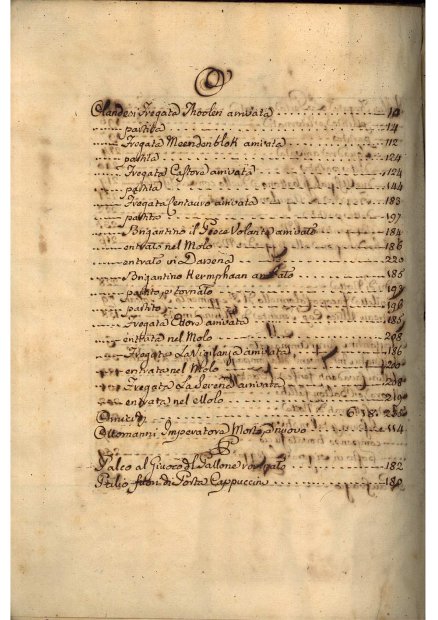 O
Olandesi Fregata Thoolen arrivata 10
partita 14
Fregata Meendenblok arrivata 112
partita 124
Fregata Castore arrivata 124
partita 144
Fregata Centauro arrivata 183
partita 197
Brigantino il Pesce Volante arrivato 184
entrato nel Molo 186
entrato in Darsena 220
Brigantino arrivato 185
partito, e tornato 193
partito 196
Fregata Ettore arrivata 185
entrata nel Molo 208
Fregata La Vigilanza arrivata 186
entrata nel Molo 200
Fregata La Serena arrivata 208
entrata nel Molo 219
6. 182.
Ottomanni Imperatore Morto, e nuovo 114
P
Palco al Giuoco del Pallone 182
Palio fuori di Porta Cappuccini 180